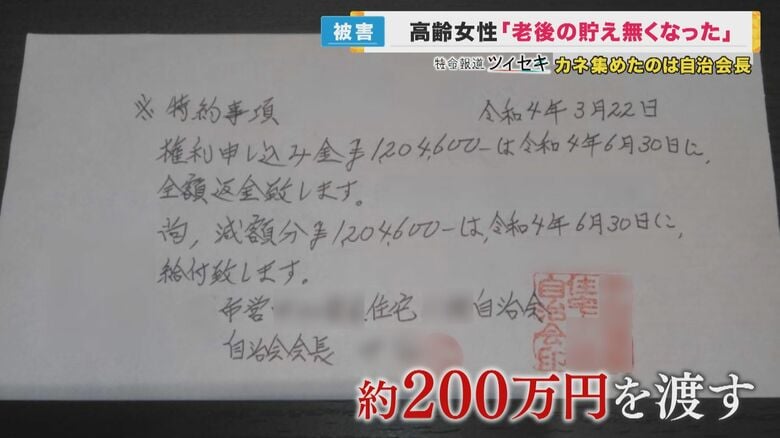 被害
高齢女性「老後の貯え無くなった」
特命報道 ツイセキ カネ集めたのは自治会長
※特約事項 令和4年3月22日
権利申し込み金¥1,204,600-は令和4年6月30日に、
全額返金致します。
尚、減額分¥1,204,600-は、令和4年6月30日に、
給付致します。
市営 住宅 自治会
自治会会長
住宅
自治会印
約200万円を渡す